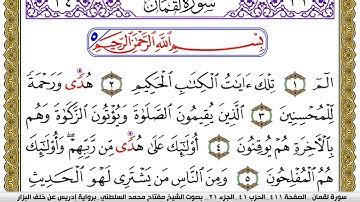 سورة لقمان
بِسْمِ اللَّهِ الرَّحْمَٰنِ الرَّحِيمِ
الٓمٓ ١ تِلْكَ ءَايَٰتُ الْكِتَٰبِ الْحَكِيمِ ٢ هُدًى وَرَحْمَةً
لِّلْمُحْسِنِينَ ٣ الَّذِينَ يُقِيمُونَ الصَّلَوٰةَ وَيُؤْتُونَ الزَّكَوٰةَ وَهُم
بِالْأَخِرَةِ هُمْ يُوقِنُونَ ٤ أُوْلَٰٓئِكَ عَلَىٰ هُدًى مِّن رَّبِّهِمْ وَأُوْلَٰٓئِكَ
هُمُ الْمُفْلِحُونَ ٥ وَمِنَ النَّاسِ مَن يَشْتَرِى لَهْوَ الْحَدِيثِ
سورة لقمان - الصفحة ٤١١ الحزب ٤١ الجزء ٢١ - بصوت الشيخ مفتاح محمد السلطني برواية إدريس عن خلف البزار